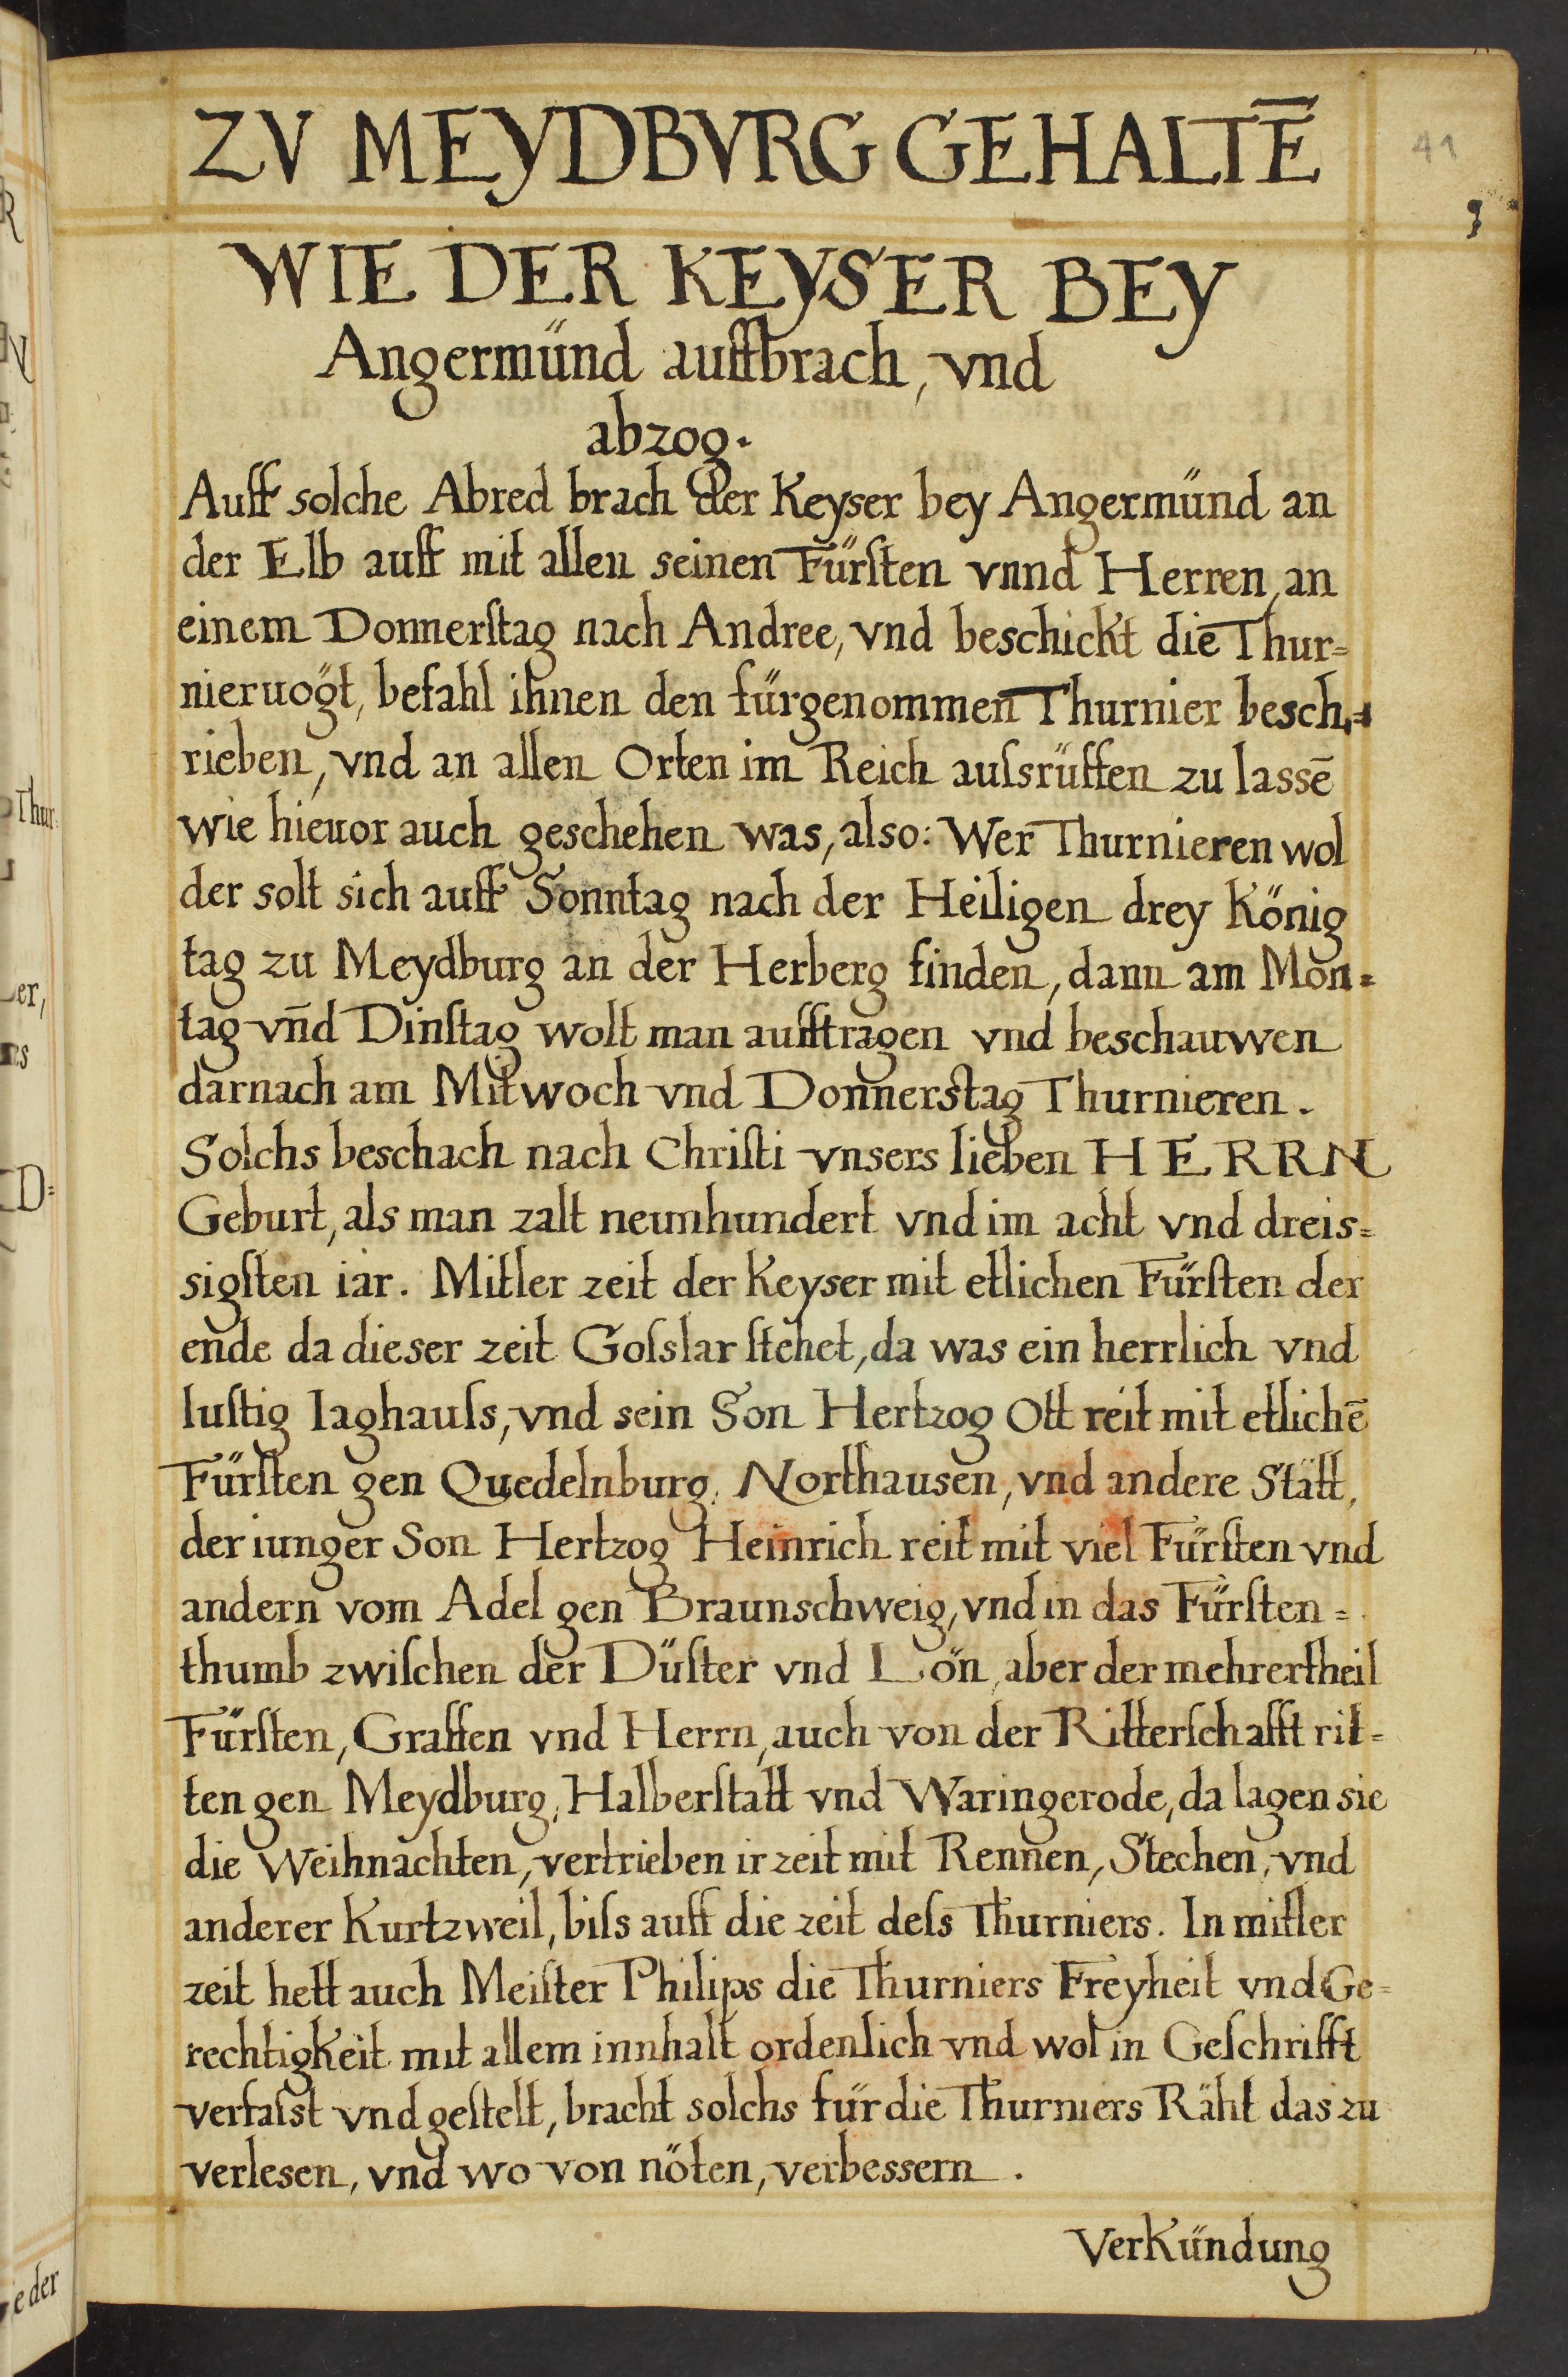 ZV MEYDBVRG GEHALTĒ
41
9
WIE DER KEYSER BEY
Angermünd auffbrach, vnd
abzog.
Auff solche Abred brach der Keyser bey Angermünd an
der Elb auff mit allen seinen Fürſten vnnd Herren, an
einem Donnerſtag nach Andree, vnd beschickt die Thur=
nieruögt, befahl ihnen den fürgenommen Thurnier besch=
rieben, vnd an allen Orten im Reich auſsrüffen zu lassē
wie hieuor auch geschehen was, also: Wer Thurnieren wol
der solt sich auff Sonntag nach der Heiligen drey König
tag zu Meydburg an der Herberg finden, dann am Mon=
tag vn̄d Dinſtag wolt man aufftragen vnd beschauwen
darnach am Mitwoch vnd Donnerstag Thurnieren.
Solchs beschach nach Chriſti vnsers lieben HERRN
Geburt, als man zalt neunhundert vnd im acht vnd dreis=
sigſten iar. Mitler zeit der Keyser mit etlichen Fürſten der
ende da dieser zeit Goſslar ſtehet, da was ein herrlich vnd
luſtig Iaghauſs, vnd sein Son Hertzog Ott reit mit etlichē
Fürſten gen Quedelnburg, Northausen, vnd andere Stätt,
der iunger Son Hertzog Heinrich reit mit viel Fürſten vnd
andern vom Adel gen Braunschweig, vnd in das Fürſten=
thumb zwiſchen der Düſter vnd Lön, aber der mehrertheil
Fürſten, Graffen vnd Herrn, auch von der Ritterſchafft rit=
ten gen Meydburg, Halberſtatt vnd Waringerode, da lagen sie
die Weihnachten, vertrieben ir zeit mit Rennen, Stechen, vnd
anderer Kurtzweil, biſs auff die zeit deſs Thurniers. In mitler
zeit hett auch Meiſter Philips die Thurniers Freyheit vnd Ge=
rechtigkeit mit allem innhalt ordenlich vnd wol in Geſchrifft
verfaſst vnd geſtelt, bracht solchs für die Thurniers Räht das zu
verlesen, vnd wo von nöten, verbessern.
Verkündung